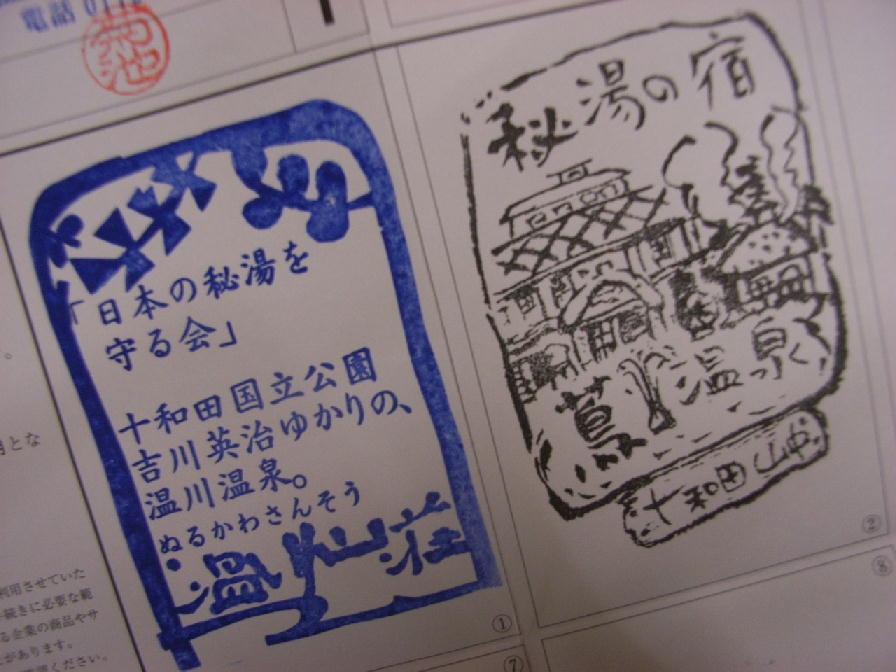 電話 01
菊池
「日本の秘湯を
守る会」
十和田国立公園
吉川英治ゆかりの、
温川温泉。
ぬるかわさんそう
温川山荘
①
秘湯の宿
蔦温泉
十和田山中
②
。
月とな
利用させていた
手続きに必要な範
る企業の商品やサ
があります。
ください。
⑦
⑧